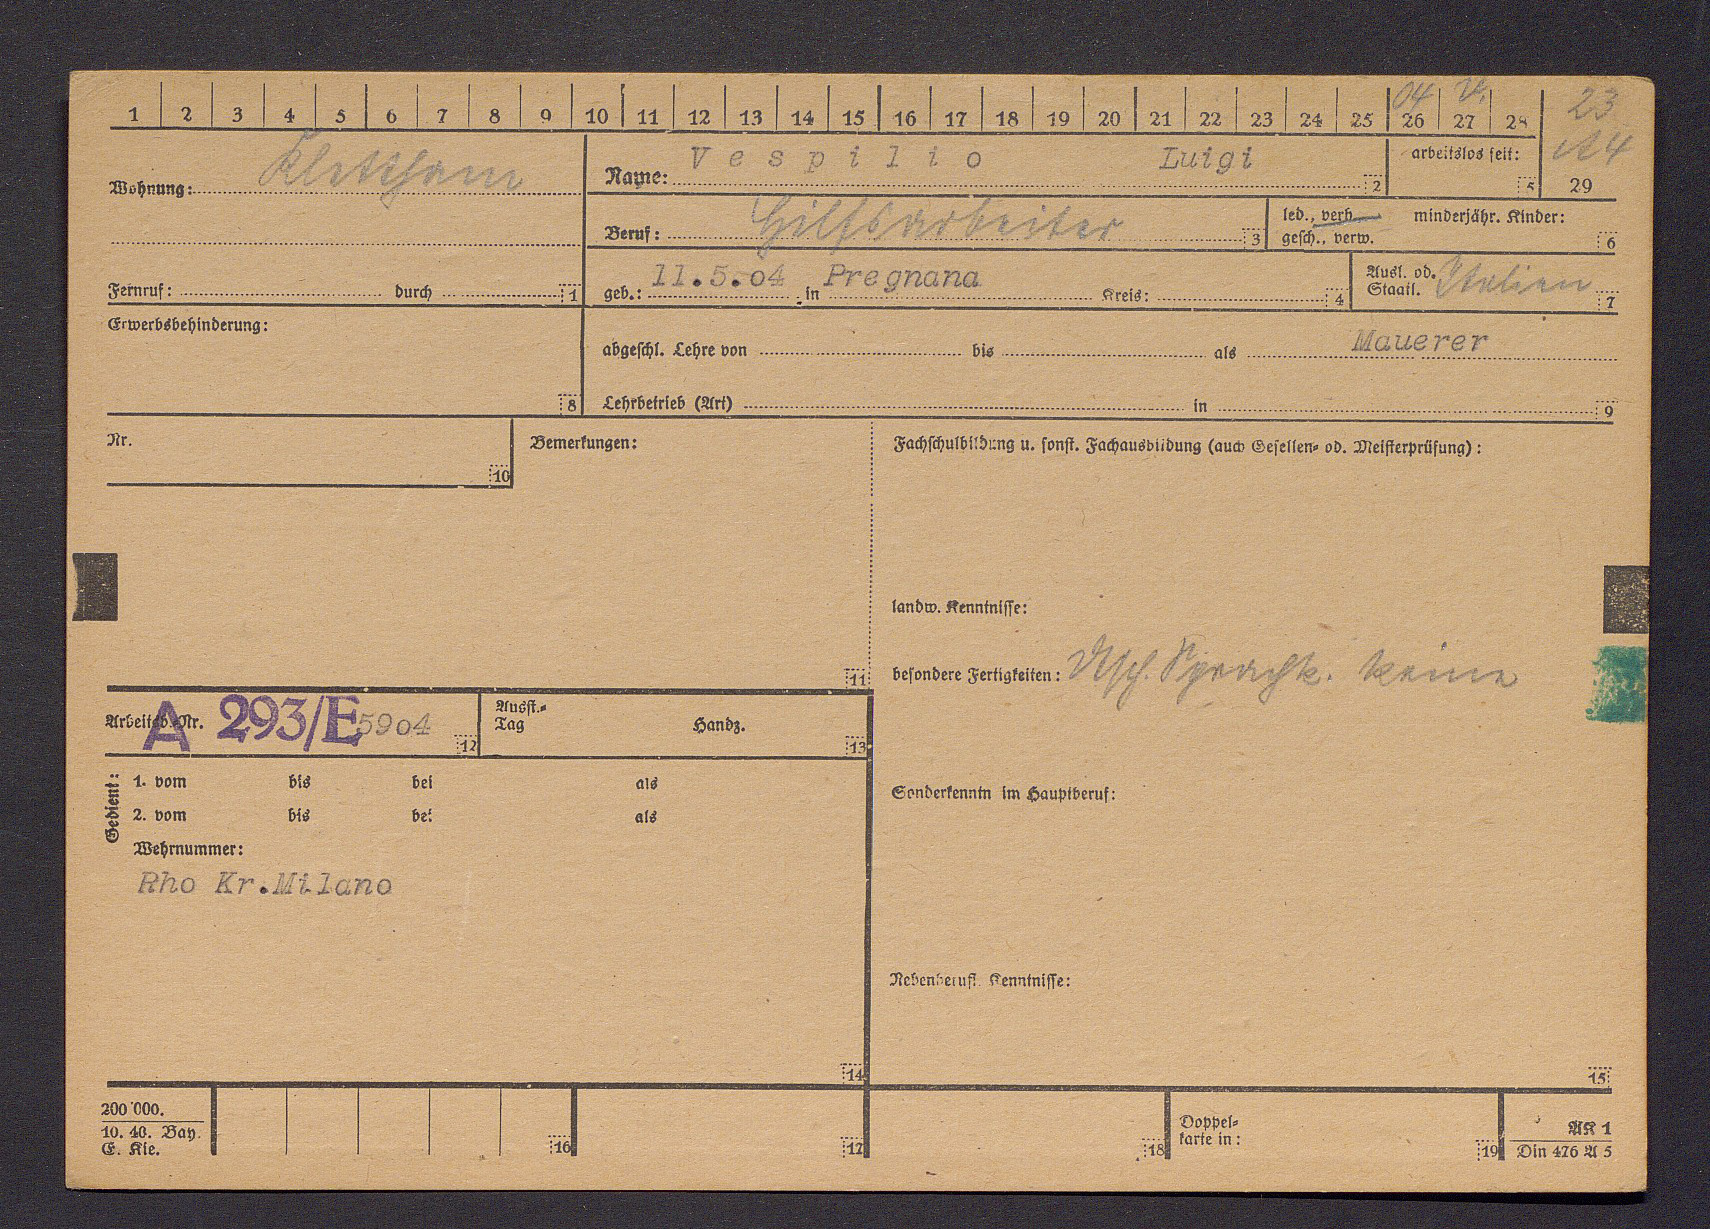 1 2 3 4 5 6 7 8 9 10 11 12 13 14 15 16 17 18 19 20 21 22 23 24 25 26 27 28
04 V. 23
A4
29
Wohnung: Klettham
Name: Vespilio Luigi 2
arbeitslos seit: 5
Beruf: Hilfsarbeiter 3
led., verh.
gesch., verw.
minderjähr. Kinder: 6
Fernruf: durch 1
geb.: 11.5.04 in Pregnana Kreis: 4
Ausl. od.
Staatl. Italien 7
Erwerbsbehinderung: 8
abgeschl. Lehre von bis als Mauerer
Lehrbetrieb (Art) in 9
Nr. 10
Bemerkungen: 11
Fachschulbildung u. sonst. Fachausbildung (auch Gesellen- od. Meisterprüfung):
landw. Kenntnisse:
besondere Fertigkeiten: Dtsch. Sprachk. keine
Arbeitsb.-Nr. A 293/E 5904 12
Ausst.-
Tag Handz. 13
Gedient:
1. vom bis bei als
2. vom bis bei als
Wehrnummer:
Rho Kr.Milano
14
Sonderkenntn im Hauptberuf:
Nebenberufl. Kenntnisse:
15
200 000.
10. 40. Bay.
E. Kie.
16 17 18
Doppel-
karte in: 19
AK 1
Din 476 A 5